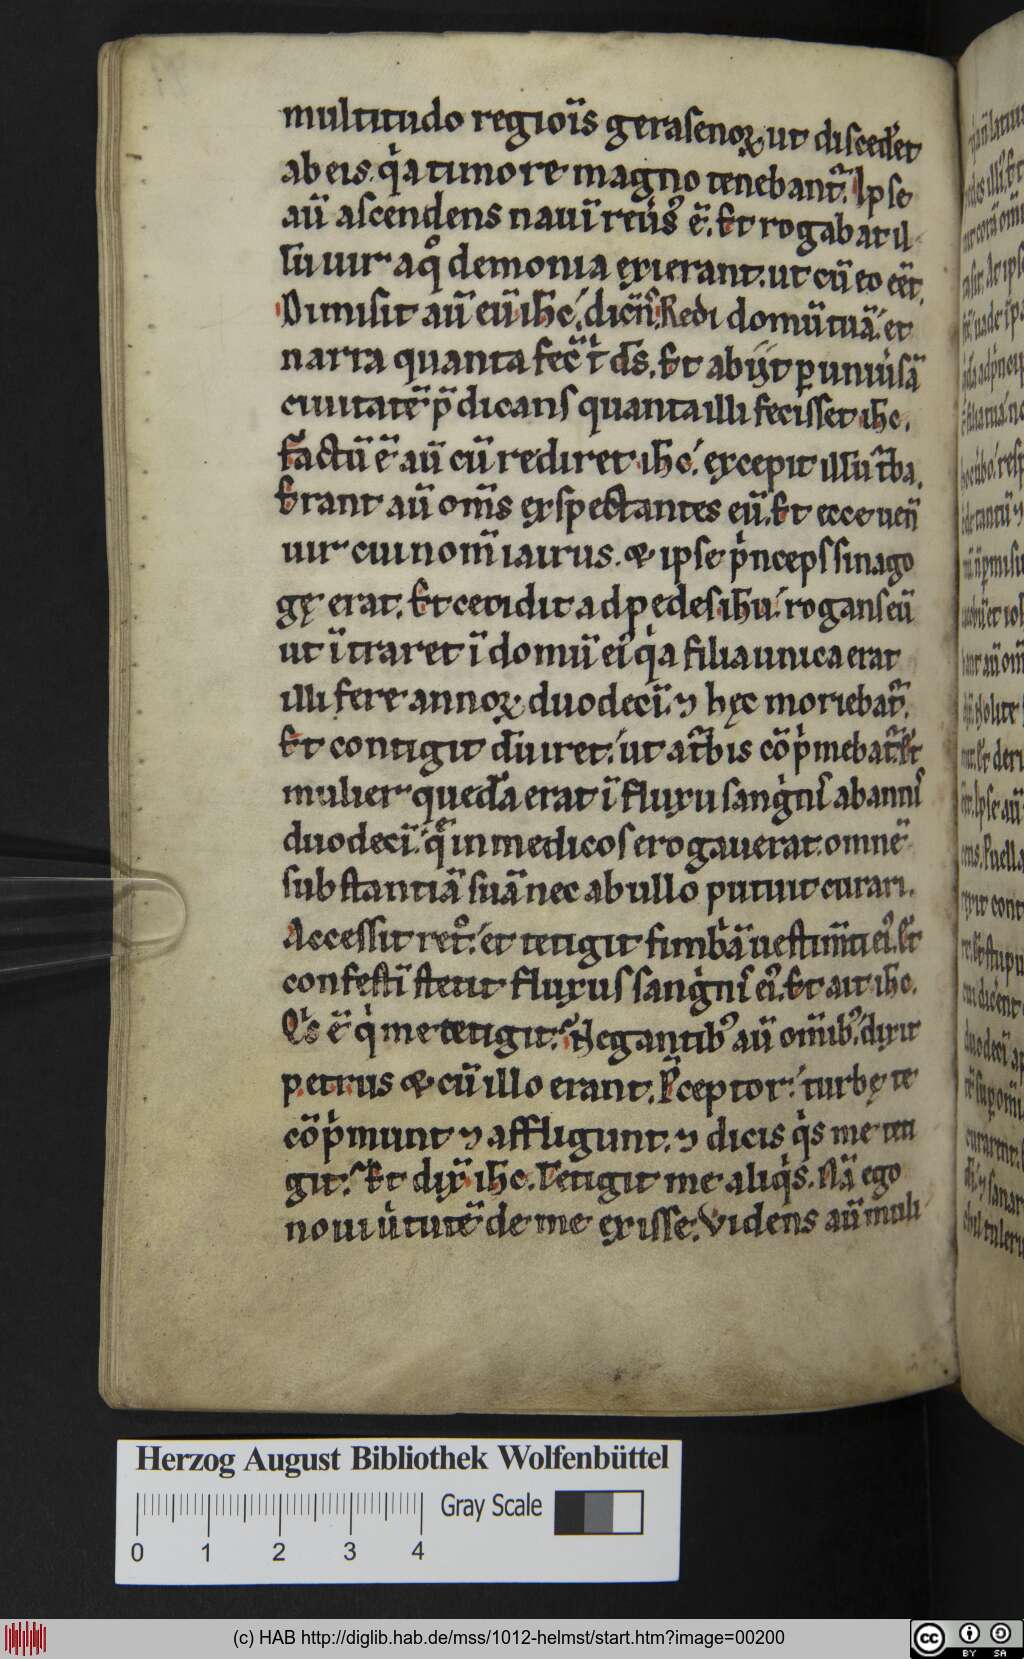 multitudo regiōis geraſenoꝝ ut diſcedꝰet
ab eis. qͥa timore magno tenebantᷣ. Ipſe
aū aſcendens nauī reuͥſꝰ ē. Et rogabat il
lū uir a qͦ demonia exierant. ut cū eo eēt.
Dimiſit aū eū ihc̄. dicn̄ſ. Redi domū tuā. et
narra quanta fecͥt d̄s. Et abijt ꝑ uniuͥſā
ciuitatē p̄dicanſ quanta illi feciſſet ihc̄.
Factū ē aū cū rediret ihc̄. excepit illū tᷣba.
Erant aū om̄s exſpectantes eū. Et ecce uen̄
uir cui nom̄ iairus. ⁊ ipſe pͥncepſ ſinago
gę erat. Et cecidit ad pedeſ ihū. roganſ eū
ut ītraret ī domū eiꝰ qͥa filia unica erat
illi fere annoꝝ duodecī. ⁊ hęc moriebatᷣ.
Et contigit dū iret. ut a tᷣbis cōpͥmebatᷣ. Et
mulier quedā erat ī fluxu ſangͥniſ ab anniſ
duodecī. q̄ in medicoſ erogauerat omnē
ſubſtantiā ſuā nec ab ullo potuit curari.
Acceſſit retͦ. et tetigit fimbͥā ueſtim̄ti eiꝰ. Et
confeſtī ſtetit fluxus ſangͥniſ eiꝰ. Et ait ihc̄.
Qͥs ē qͥ me tetigit. Negantibꝰ aū om̄ibꝰ. dixit
petrus ⁊ cū illo erant. P̄ceptor. turbę te
cōpͥmunt ⁊ affligunt. ⁊ dicis qͥs me teti
git. Et dix̄ ihc̄. Tetigit me aliqͥs. Nā ego
noui uͥtutē de me exiſſe. Videns aū muli
Herzog August Bibliothek Wolfenbüttel
Gray Scale
0 1 2 3 4
(c) HAB http://diglib.hab.de/mss/1012-helmst/start.htm?image=00200
cc BY SA